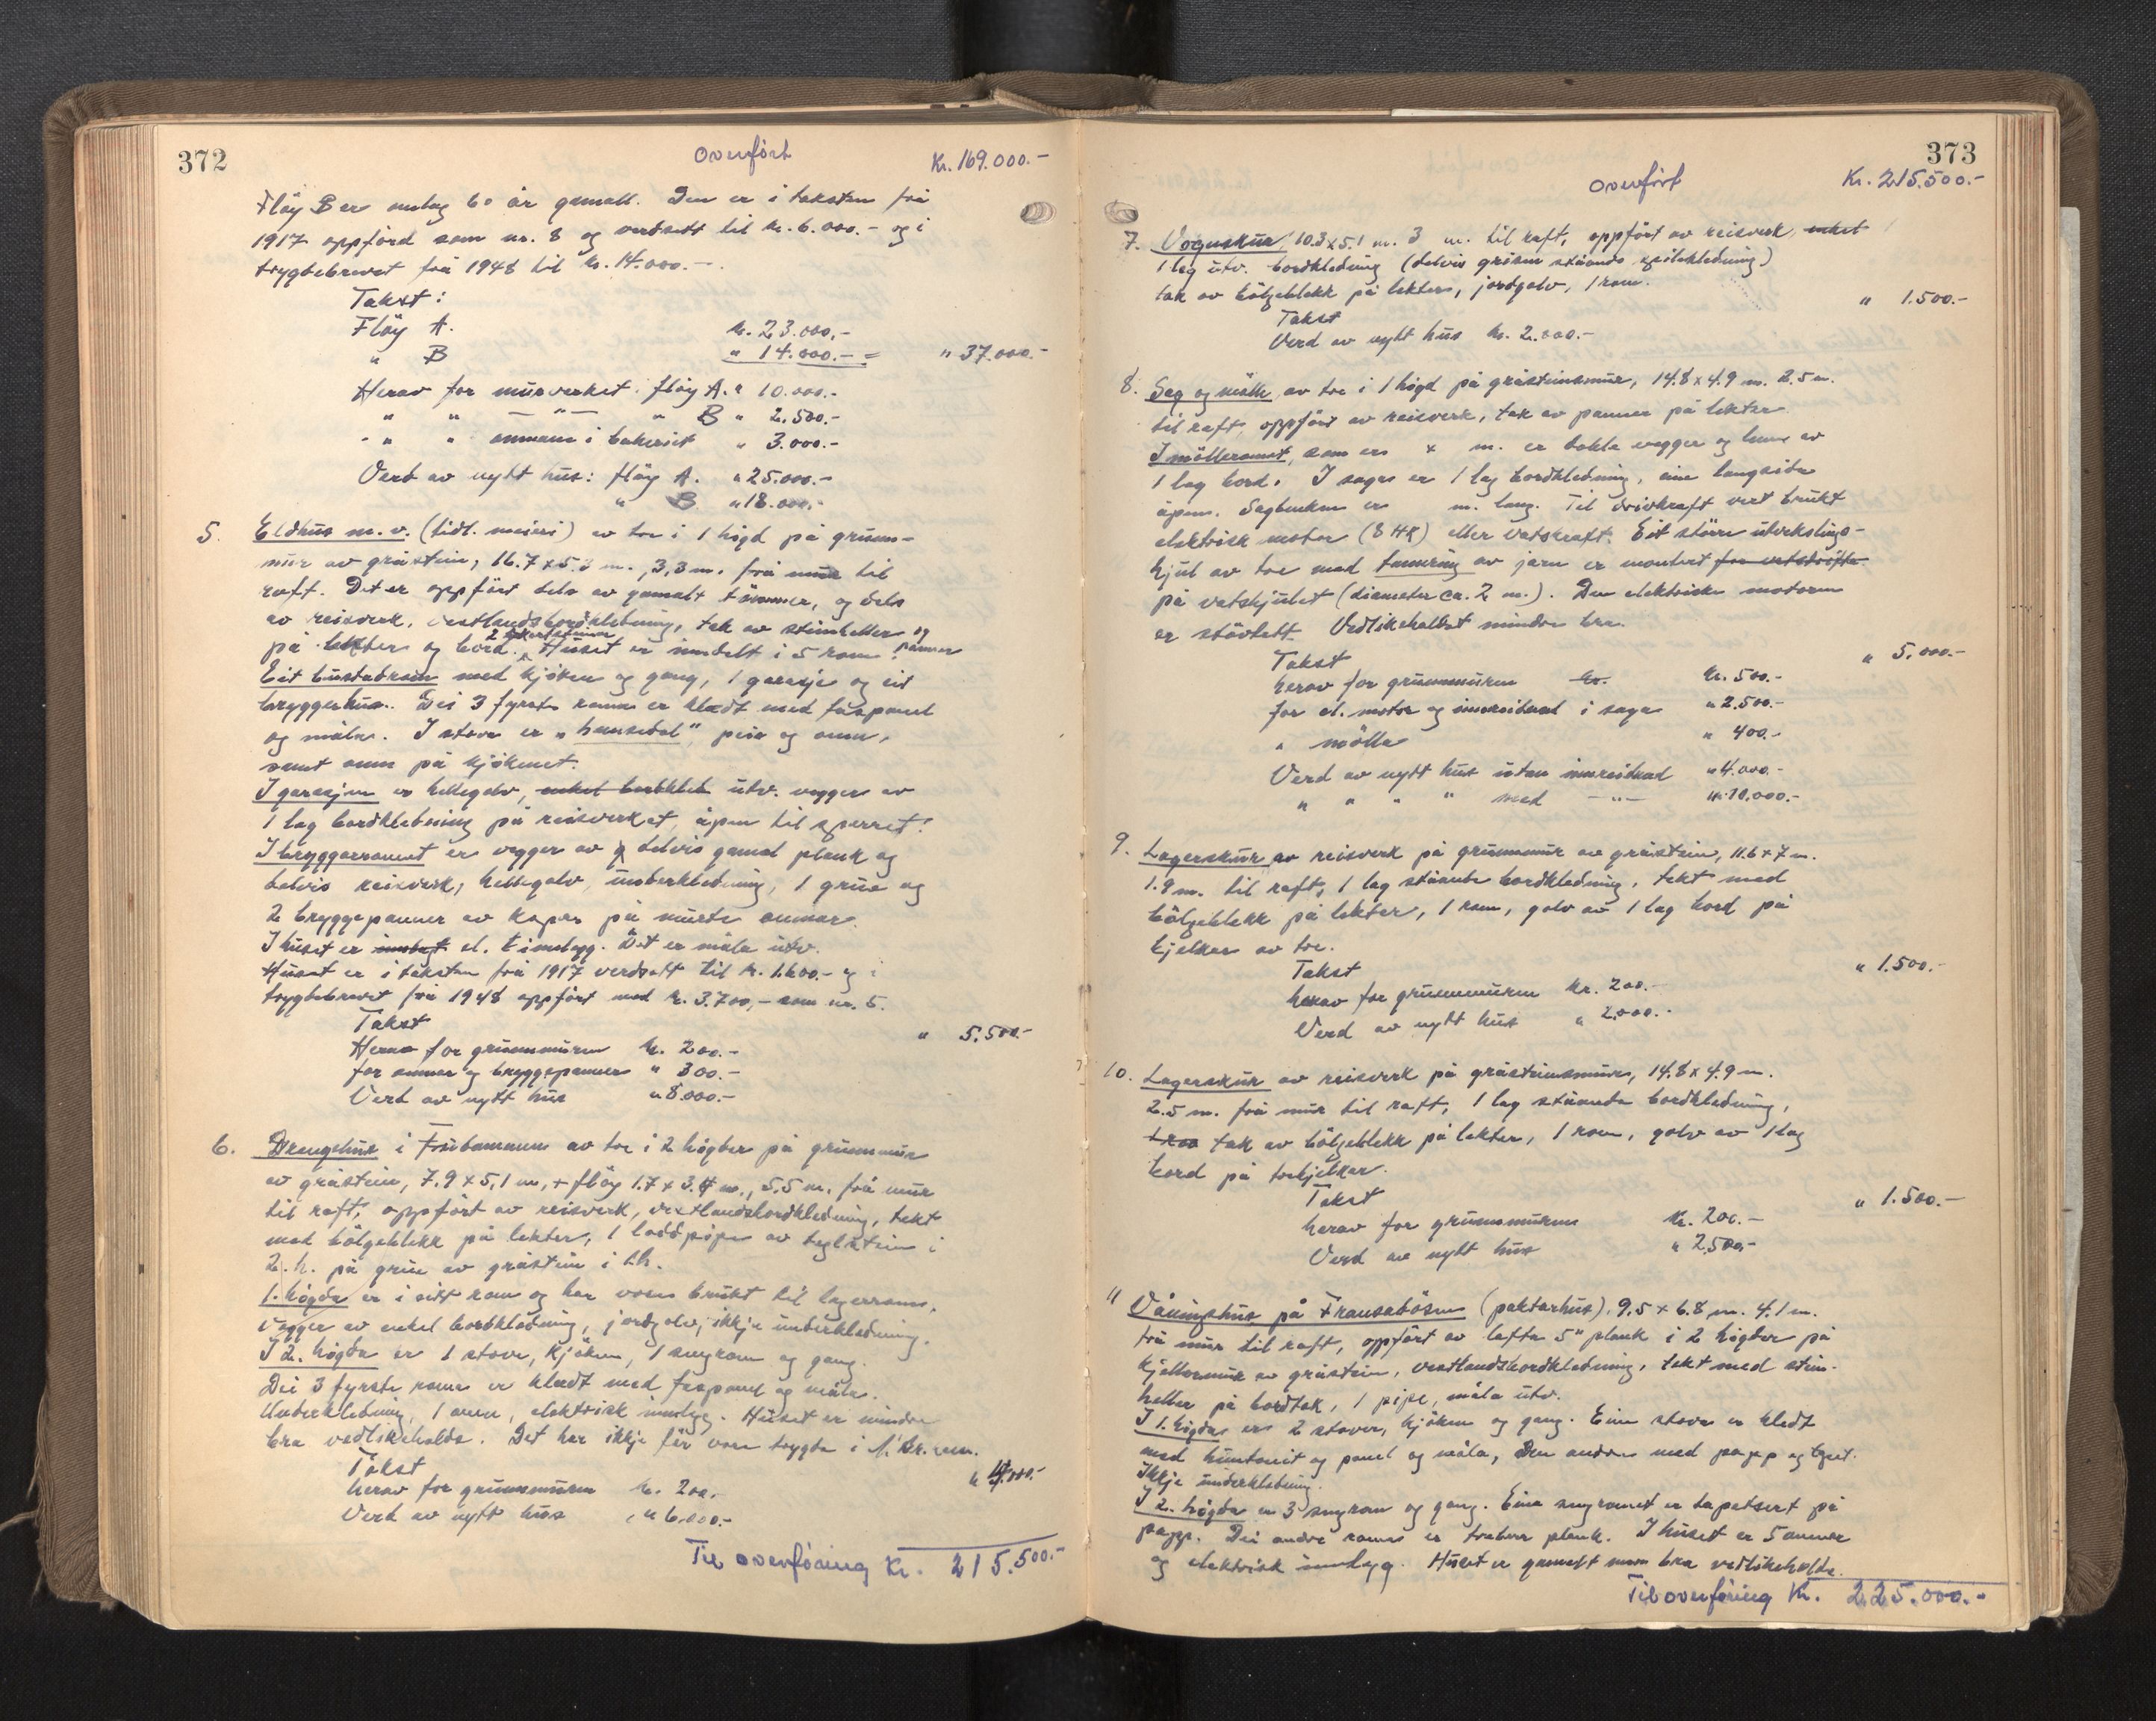 372
Overført
Kr. 169.000.-
Fløy B er omlag 60 år gamall. Den er i taksten frå
1917 oppførd som nr. 8 og verdsett til kr. 6.000.- og i
trygdebrevet frå 1948 til kr. 14.000.-.
Takst:
Fløy A. kr. 23.000,-
" B " 14.000.- = " 37.000.-
Herav for murverket i fløy A. " 10.000.-
" " —"— " B " 2.500.-
" " omnane i bakeriet " 3.000.-
Verd av nytt hus: fløy A. " 25.000.-
" B " 18.000.-
5. Eldhus m.v. (tidl. meieri) av tre i 1 høgd på grunn-
mur av gråstein, 16.7 x 5.3 m., 3,3 m. frå mur til
raft. Det er oppført dels av gamalt tømmer, og dels
av reisverk, vestlandsbordkledning, tak av steinheller og
panner
på lekter og bord. 2 skorsteinar Huset er inndelt i 5 rom.
Eit bustadrom med kjøken og gang, 1 garasje og eit
bryggerhus. Dei 3 fyrste romma er kledt med faspanel
og måla. I stova er "hansedal" peis og omn,
samt omn på kjøkenet.
I garasjen er hellegolv, enkel bordkled utv. vegger av
1 lag bordkledning på reisverket, åpen til sperret.
I bryggerromet er vegger av delvis gamal plank og
delvis reisverk, hellegolv, underkledning, 1 grue og
2 bryggepanner av kopar på murte omnar.
I huset er innlagt el. innlegg. Det er måla utv.
Huset er i taksten frå 1917 verdsatt til kr. 1.600.- og i
trygdebrevet frå 1948 oppført med kr. 3.700,- som nr. 5.
Takst " 5.500.-
Herav for grunnmuren kr. 200.-
for omnar og bryggepanner " 300.-
Verd av nytt hus " 8.000.-
6. Drengehus i Fruhammaren av tre i 2 høgder på grunnmur
av gråstein, 7.9 x 5,1 m, + fløy 1.7 x 3.4 m., 5.5 m. frå mur
til raft, oppført av reisverk, vestlandsbordkledning, tekt
med bølgeblekk på lekter, 1 loddpipe av teglstein i
2. h. på grue av gråstein i 1.h.
1. høgda er i eitt rom og har vore brukt til lagerrom.
Vegger av enkel bordkledning, jordgolv, ikkje underkledning.
I 2. høgda er 1 stove, kjøken, 1 sengrom og gang.
Dei 3 fyrste romma er kledt med faspanel og måla.
Underkledning, 1 omn, elektrisk innlegg. Huset er mindre
bra vedlikeholde. Det har ikkje før vore trygda i N. Br. kassa.
Takst " 4.000.-
herav for grunnmuren kr. 200.-
Verd av nytt hus " 6.000.-
Til overføring Kr. 215.500.-
373
Overført
Kr. 215.500.-
7. Vognskur 10.3 x 5.1 m. 3 m. til raft, oppført av reisverk, enkel
1 lag utv. bordkledning (delvis grisen ståande spilekledning)
tak av bølgeblekk på lekter, jordgolv, 1 rom.
Takst " 1.500.-
Verd av nytt hus kr. 2.000.-
8. Sag og mølle av tre i 1 høgd på gråsteinsmur, 14.8 x 4.9 m. 2.5 m.
til raft, oppført av reisverk, tak av panner på lekter.
I mølleromet, som er x m. er dobla vegger og lem av
1 lag bord. I saga er 1 lag bordkledning, eine langsida
åpen. Sagbenken er m. lang. Til drivkraft vert brukt
elektrisk motor (8 HK) eller vatskraft. Eit større utvekslings-
hjul av tre med tannring av jarn er montert for vatsdrifta
på vatshjulet (diameter ca. 2 m.). Den elektriske motoren
er støvtett. Vedlikehaldet mindre bra.
Takst " 5.000.-
herav for grunnmuren kr. kr. 500.-
for el. motor og innreidnad i saga " 2.500.-
" mølla " 400.-
Verd av nytt hus utan innreidnad " 4.000.-
" " " " med —"— " 10.000.-
9. Lagerskur av reisverk på grunnmur av gråstein, 11.6 x 7 m.
1.8 m. til raft, 1 lag ståande bordkledning, tekt med
bølgeblekk på lekter, 1 rom, golv av 1 lag bord på
bjelker av tre.
Takst " 1.500.-
herav for grunnmuren kr. 200.-
Verd av nytt hus " 2.000.-
10. Lagerskur av reisverk på gråsteinsmur, 14.8 x 4.9 m.
2.5 m. frå mur til raft, 1 lag ståande bordkledning,
1 rom tak av bølgeblekk på lekter, 1 rom, golv av 1 lag
bord på trebjelker.
Takst " 1.500.-
herav for grunnmuren Kr. 200.-
Verd av nytt hus " 2.500,-
11 Våningshus på Fransabøen (paktarhus), 9,5 x 6.8 m. 4.1 m.
frå mur til raft, oppført av lafta 5" plank i 2 høgder på
kjellarmur av gråstein, vestlandsbordkledning, tekt med stein-
heller på bordtak, 1 pipe, måla utv.
I 1. høgda er 2 stover, kjøken og gang. Eine stova er kledt
med huntonit og panel og måla, den andre med papp og tapet.
Ikkje underkledning.
I 2. høgda er 3 sengrom og gang. Eine sengromet er tapetsert på
papp. Dei andre romma er trekvit plank. I huset er 5 omnar
og elektrisk innlegg. Huset er gamalt men bra vedlikeholde.
Til overføring Kr. 225.000.-